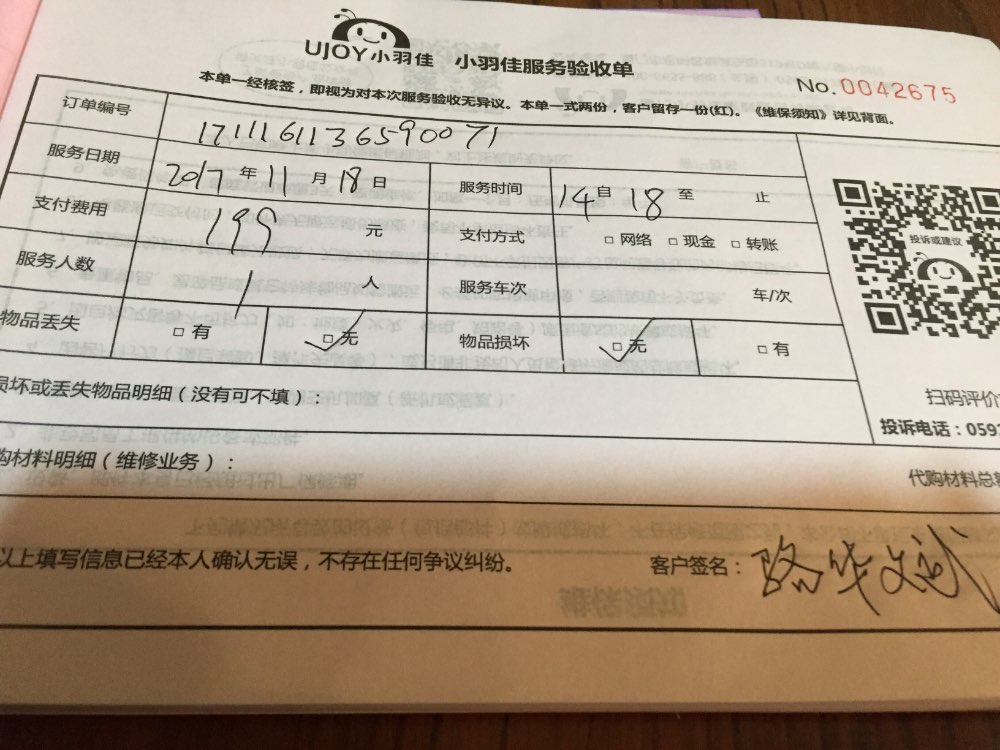 UJOY小羽佳 小羽佳服务验收单
No.0042675
本单一经核签，即视为对本次服务验收无异议。本单一式两份，客户留存一份(红)。《维保须知》详见背面。
订单编号 17111611365900 71
服务日期 2017 年 11 月 18 日 服务时间 14 自 18 至 止
支付费用 199 元 支付方式 □ 网络 □ 现金 □ 转账
服务人数 1 人 服务车次 车/次
物品丢失 □ 有 □ 无 物品损坏 □ 无 □ 有
投诉或建议
扫码评价
投诉电话：059
损坏或丢失物品明细（没有可不填）：
购材料明细（维修业务）：
代购材料总
以上填写信息已经本人确认无误，不存在任何争议纠纷。 客户签名：